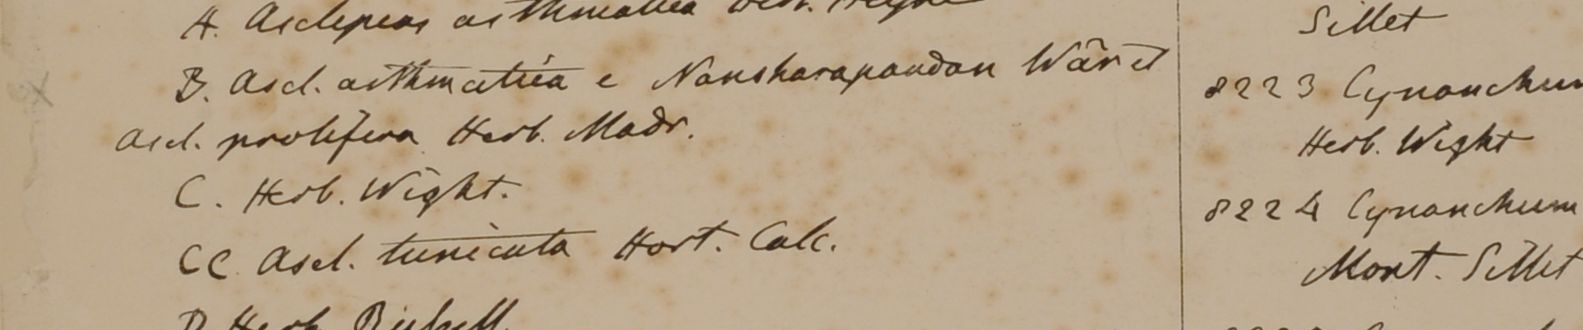 A. Asclepias asthmatica Herb. Heyne
B. Ascl. asthmatica e Wār et
Ascl. prolifera Herb. Madr.
C. Herb. Wight.
CC Ascl. tunicata Hort. Calc.
D Herb.
Sillet
8223 Cynanchum
Herb. Wight
8224 Cynanchum
Mont. Sillet